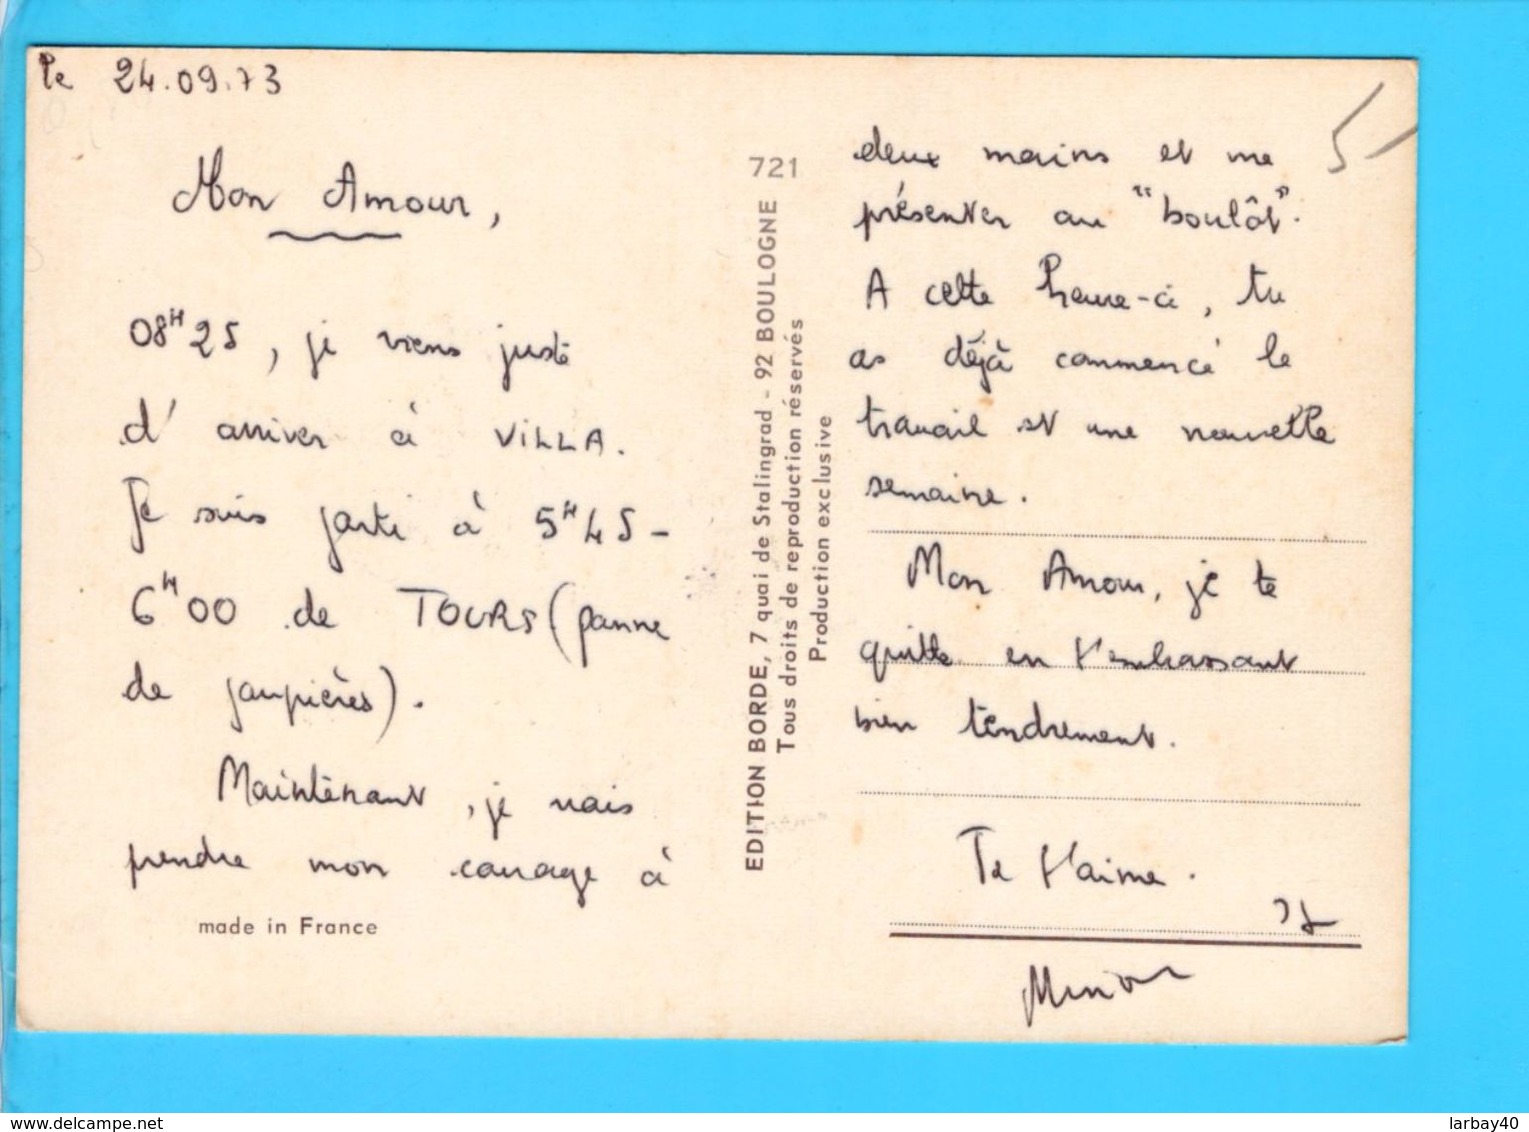 le 24.09.73
Mon Amour,
08H25, je viens juste
d'arriver à VILLA.
Je suis parti à 5H45-
6H00 de TOURS (panne
de paupières).
Maintenant, je vais
prendre mon courage à
made in France
721
EDITION BORDE, 7 quai de Stalingrad - 92 BOULOGNE
Tous droits de reproduction réservés
Production exclusive
5-
deux mains et me
présenter au "boulôt".
A cette heure-ci, tu
as déjà commencé le
travail et une nouvelle
semaine.
Mon Amour, je te
quitte en t'embrassant
bien tendrement.
Je t'aime.
www.delcampe.net
larbay40